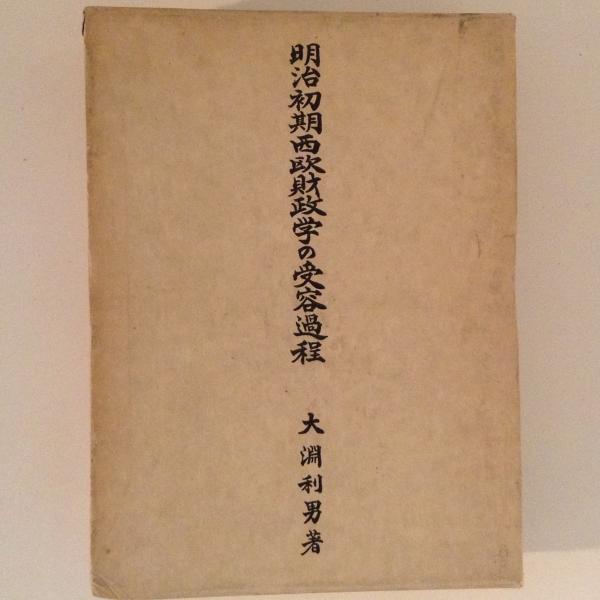 明治初期西欧財政学の受容過程
大淵利男著